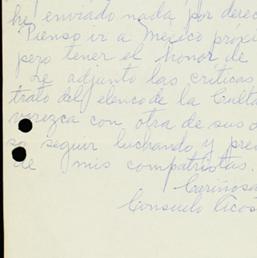 he enviado nada por derec
Pienso ir a Mexico proxi
pero tener el honor de
Le adjunto las críticas
trato del elenco de la Cultu
vorezca con otra de sus o
so seguir luchando y pre
de mis compatriotas.
Cariñosa
Consuelo Acos